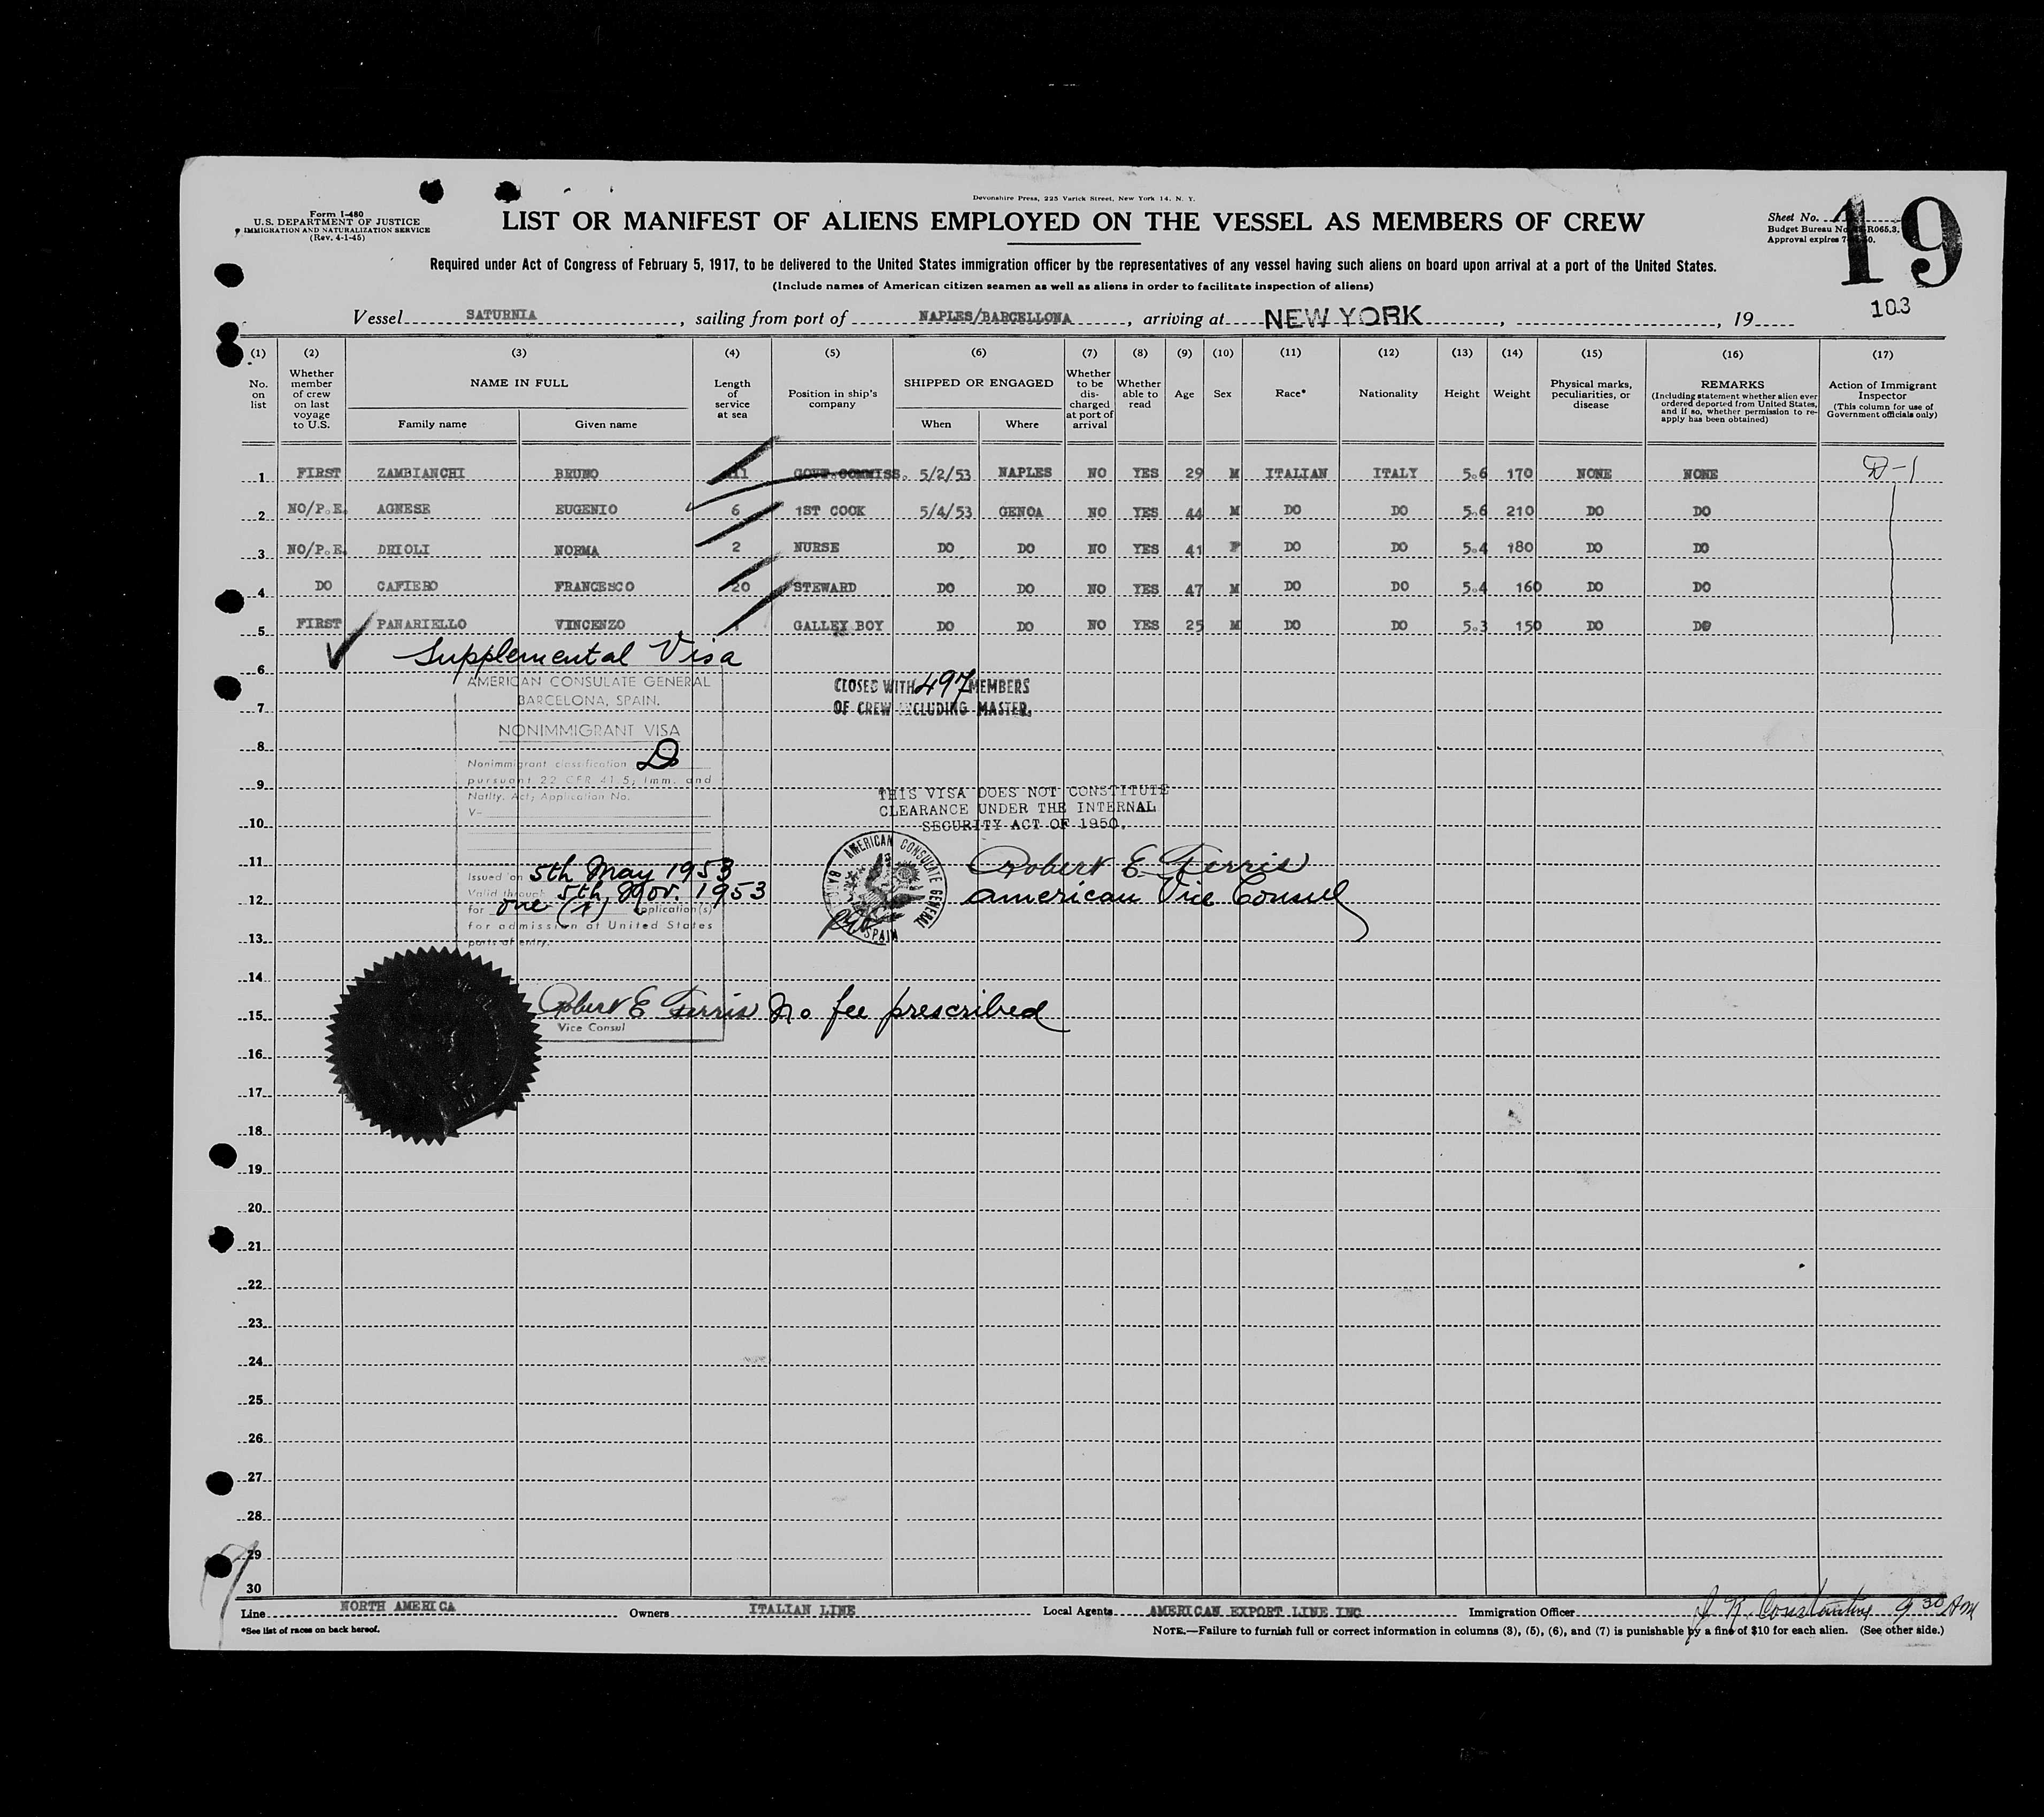 Devonshire Press, 225 Varick Street, New York 14, N. Y.
Form I-480
U.S. DEPARTMENT OF JUSTICE
IMMIGRATION AND NATURALIZATION SERVICE
(Rev. 4-1-45)
LIST OR MANIFEST OF ALIENS EMPLOYED ON THE VESSEL AS MEMBERS OF CREW
Sheet No.
Budget Bureau No. R065.3.
Approval expires
19
103
Required under Act of Congress of February 5, 1917, to be delivered to the United States immigration officer by the representatives of any vessel having such aliens on board upon arrival at a port of the United States.
(Include names of American citizen seamen as well as aliens in order to facilitate inspection of aliens)
Vessel SATURNIA, sailing from port of NAPLES/BARCELLONA, arriving at NEW YORK, , 19
(1) (2) (3) (4) (5) (6) (7) (8) (9) (10) (11) (12) (13) (14) (15) (16) (17)
No. on list
Whether member of crew on last voyage to U.S.
NAME IN FULL
Family name Given name
Length of service at sea
Position in ship's company
SHIPPED OR ENGAGED
When Where
Whether to be discharged at port of arrival
Whether able to read
Age
Sex
Race*
Nationality
Height
Weight
Physical marks, peculiarities, or disease
REMARKS
(Including statement whether alien ever ordered deported from United States, and if so, whether permission to reapply has been obtained)
Action of Immigrant Inspector
(This column for use of Government officials only)
1 FIRST ZAMBIANCHI BRUNO 11 GOVT.COMMISS. 5/2/53 NAPLES NO YES 29 M ITALIAN ITALY 5.6 170 NONE NONE D-1
2 NO/P.E. AGNESE EUGENIO 6 1ST COOK 5/4/53 GENOA NO YES 44 M DO DO 5.6 210 DO DO
3 NO/P.E. DRIOLI NORMA 2 NURSE DO DO NO YES 41 F DO DO 5.4 180 DO DO
4 DO CAFIERO FRANCESCO 20 STEWARD DO DO NO YES 47 M DO DO 5.4 160 DO DO
5 FIRST PANARIELLO VINCENZO GALLEY BOY DO DO NO YES 25 M DO DO 5.3 150 DO DO
Supplemental Visa
6
AMERICAN CONSULATE GENERAL
BARCELONA, SPAIN.
CLOSED WITH 497 MEMBERS
OF CREW INCLUDING MASTER.
7
NONIMMIGRANT VISA
8
Nonimmigrant classification D
pursuant 22 CFR 41.5; Imm. and
Natlty. Act; Application No.
V-
9
THIS VISA DOES NOT CONSTITUTE
CLEARANCE UNDER THE INTERNAL
SECURITY ACT OF 1950.
10
11
Issued on 5th May 1953
Valid through 5th Nov. 1953
for one (1) application(s)
for admission at United States
ports of entry.
AMERICAN CONSULATE GENERAL
SPAIN
Robert E. Ferris
American Vice Consul
12
13
14
15
Robert E Ferris No fee prescribed
Vice Consul
16
17
18
19
20
21
22
23
24
25
26
27
28
29
30
19
Line NORTH AMERICA Owners ITALIAN LINE Local Agents AMERICAN EXPORT LINE INC Immigration Officer 9 30 AM
*See list of races on back hereof.
NOTE.—Failure to furnish full or correct information in columns (3), (5), (6), and (7) is punishable by a fine of $10 for each alien. (See other side.)